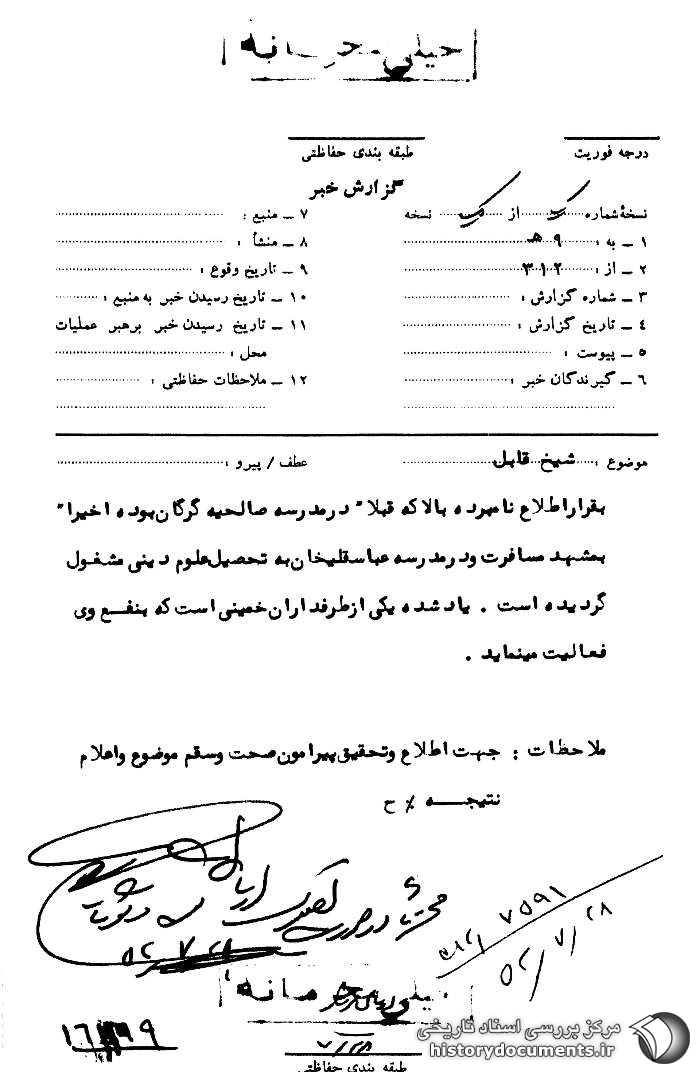 خیلی محرمانه
درجه فوریت
طبقه بندی حفاظتی
گزارش خبر
نسخهٔ شماره یک از یک نسخه
۱ ـ به : ۹ هـ
۲ ـ از : ۳۱۲
۳ ـ شماره گزارش :
۴ ـ تاریخ گزارش :
۵ ـ پیوست :
۶ ـ گیرندگان خبر :
۷ ـ منبع :
۸ ـ منشأ :
۹ ـ تاریخ وقوع :
۱۰ ـ تاریخ رسیدن خبر به منبع :
۱۱ ـ تاریخ رسیدن خبر برهبر عملیات
محل :
۱۲ ـ ملاحظات حفاظتی :
موضوع : شیخ قابل
عطف / پیرو :
بقرار اطلاع نامبرده بالا که قبلا" در مدرسه صالحیه گرگان بوده اخیرا"
بمشهد مسافرت و در مدرسه عباسقلیخان به تحصیل علوم دینی مشغول
گردیده است . یاد شده یکی از طرفداران خمینی است که بنفع وی
فعالیت مینماید .
ملاحظات : جهت اطلاع و تحقیق پیرامون صحت و سقم موضوع و اعلام
نتیجه ٪ ح
۵۲/۷/۲۸
خیلی محرمانه
۷/۲۸
طبقه بندی حفاظتی
مرکز بررسی اسناد تاریخی
historydocuments.ir